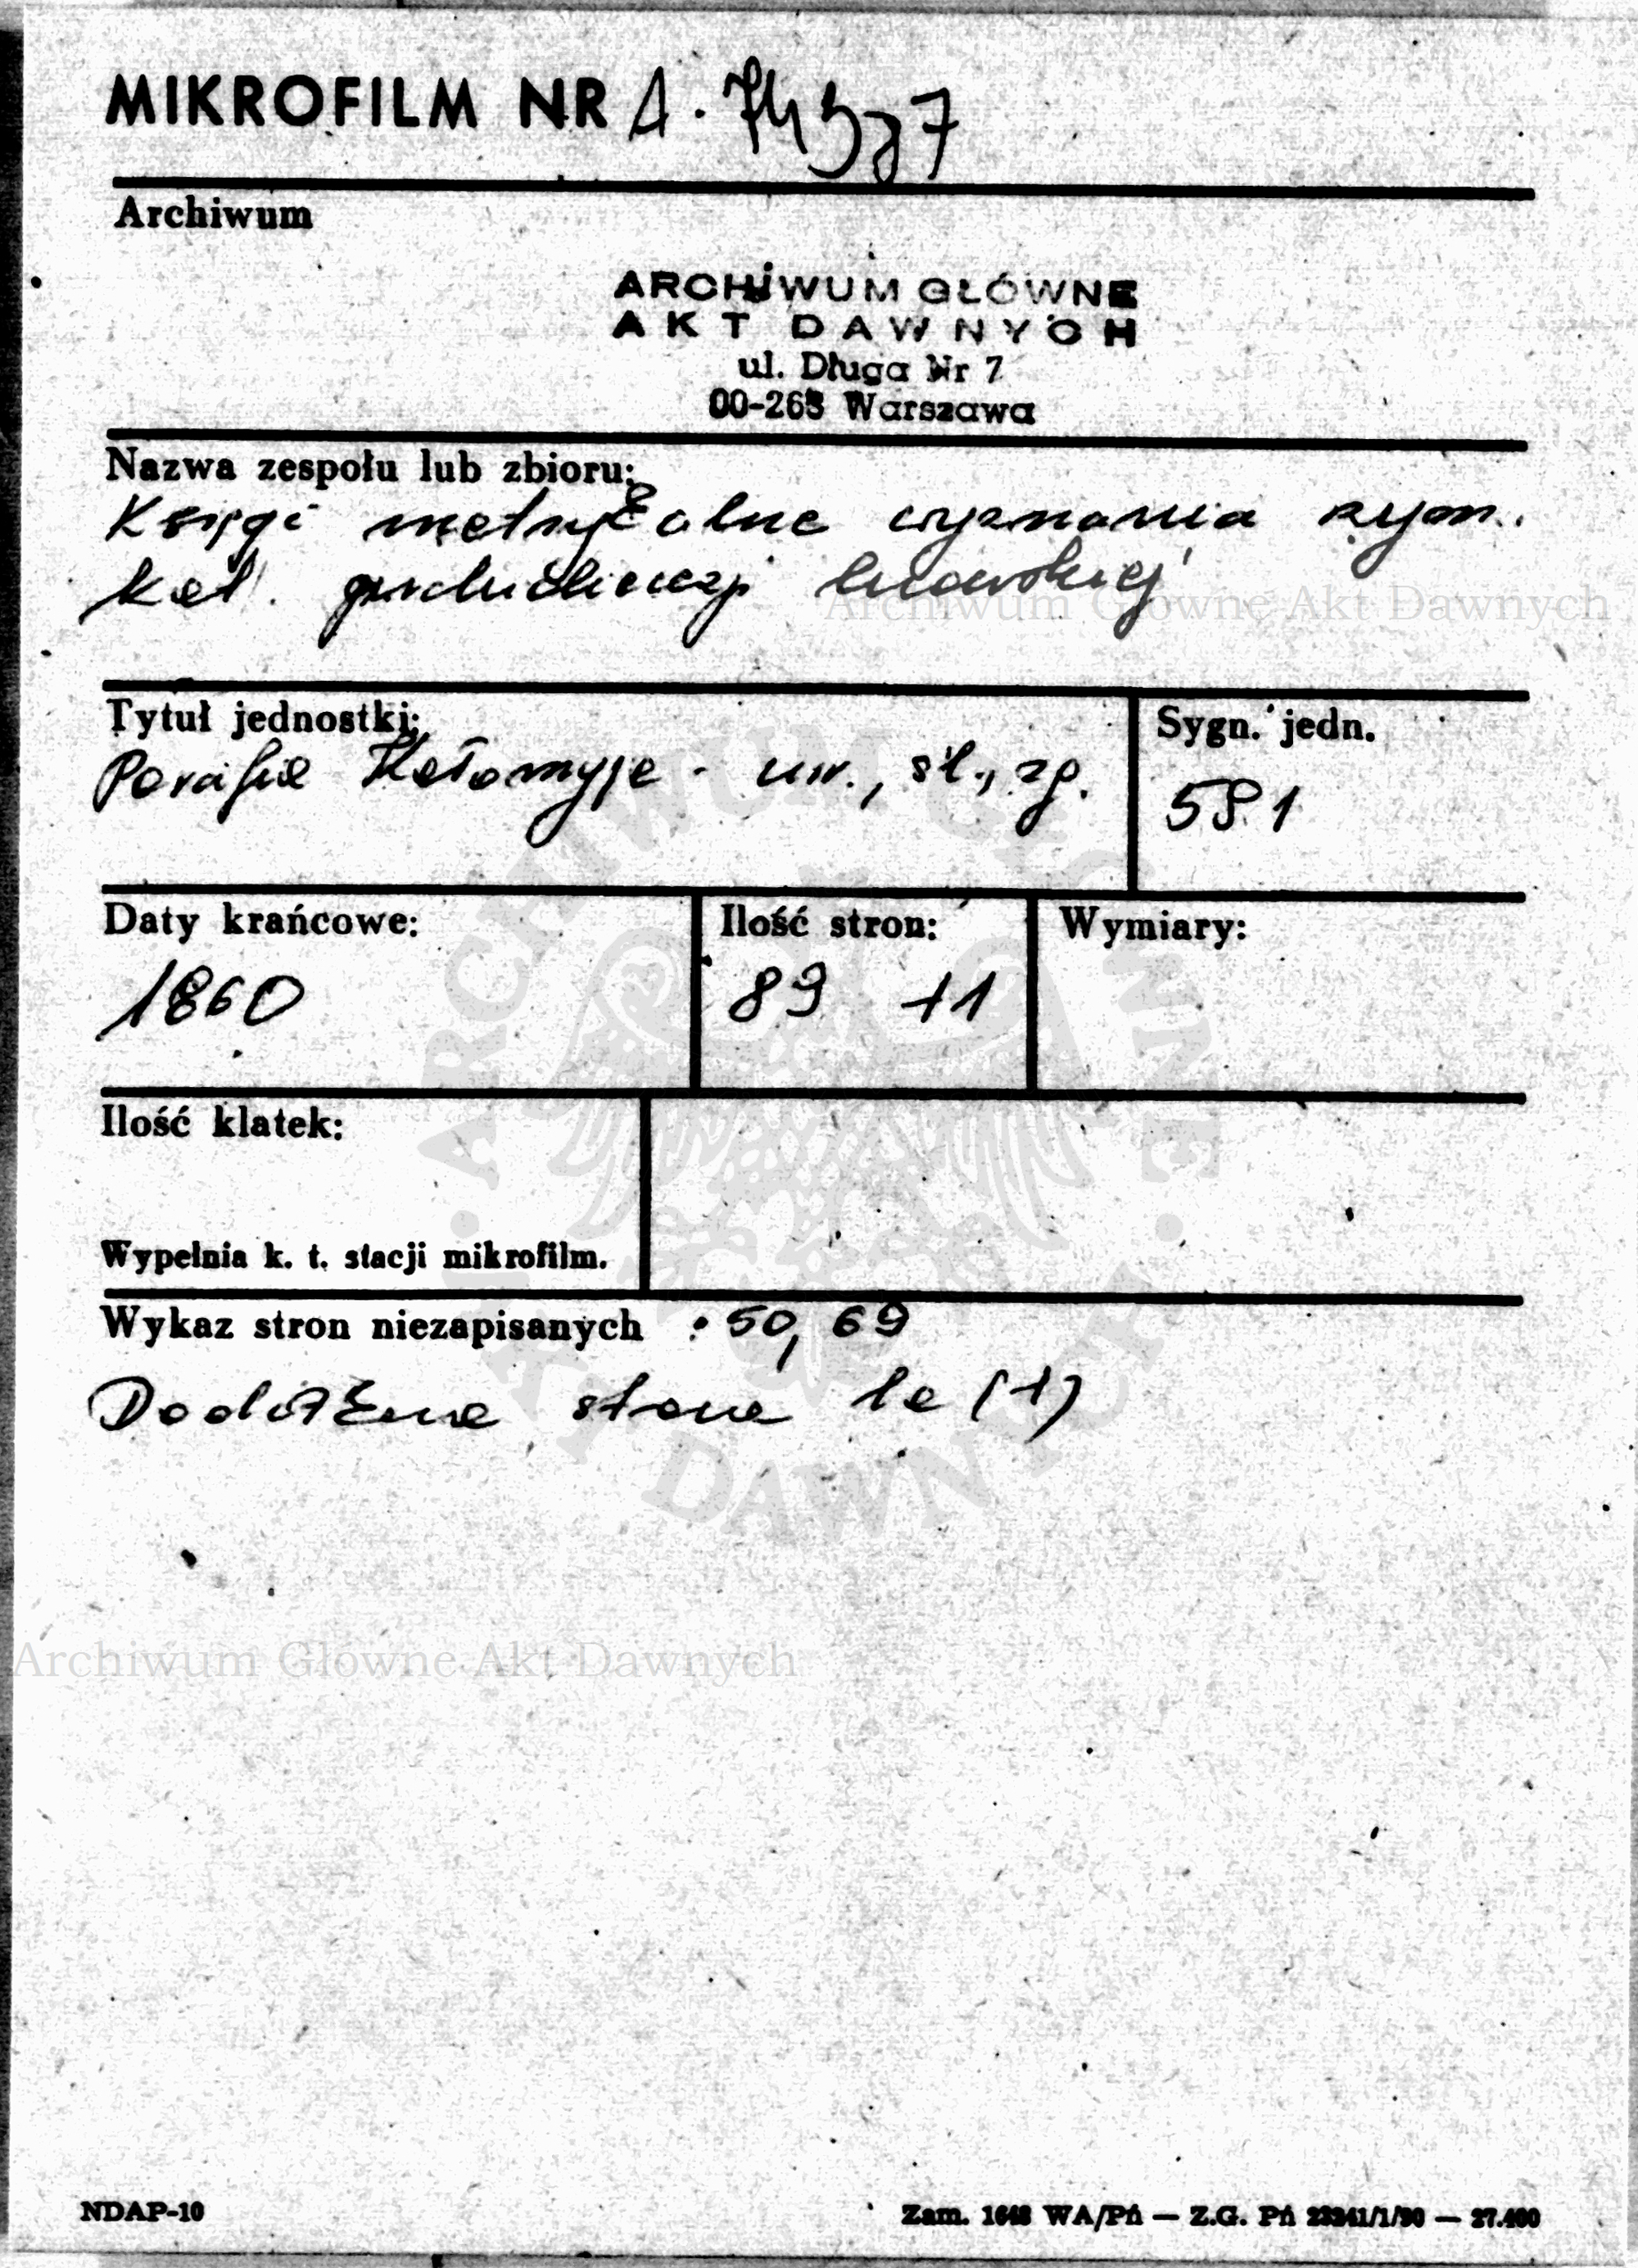 MIKROFILM NR A. 74587
Archiwum
ARCHiWUM GŁÓWNE
AKT DAWNYCH
ul. Długa Nr 7
00-263 Warszawa
Nazwa zespołu lub zbioru:
Księgi metrykalne wyznania rzym.
kat. archidiecezji lwowskiej
Archiwum Główne Akt Dawnych
Tytuł jednostki:
Parafia Kołomyja - ur., śl., zg.
Sygn. jedn.
591
Daty krańcowe:
1860
Ilość stron:
89 +1
Wymiary:
Ilość klatek:
Wypełnia k. t. stacji mikrofilm.
ARCHIWUM GŁÓWNE · AKT DAWNYCH ·
Wykaz stron niezapisanych : 50, 69
Dodatkowa strona 1a (+)
Archiwum Główne Akt Dawnych
NDAP-10
Zam. 1648 WA/Pń — Z.G. Pń 23241/1/90 — 27.400